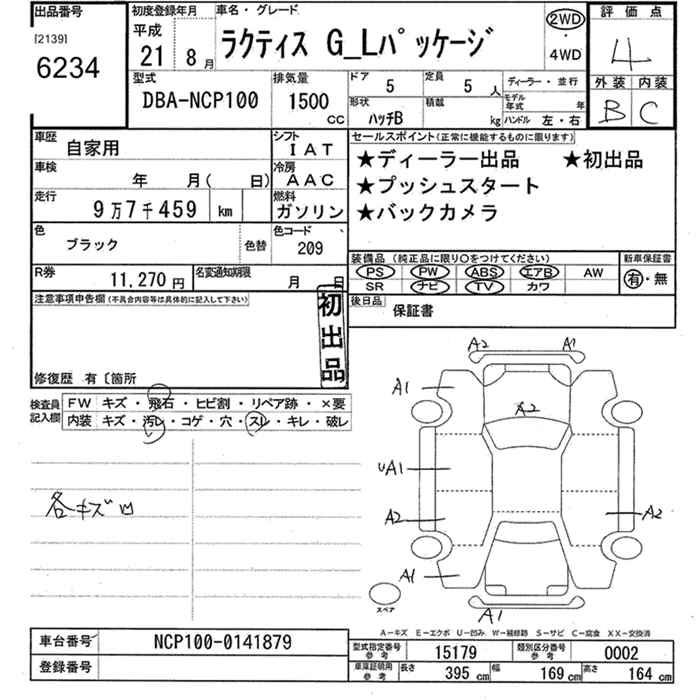 出品番号 初度登録年月 車名・グレード 評価点
[2139] 平成 2WD
6234 21 8月 ラクティス G_Lパッケージ ・ 4
4WD
型式 排気量 ドア 定員 ディーラー・並行 外装 内装
DBA-NCP100 1500 CC 5 5人 モデル年式 年
形状 積載 B C
ハッチB kg ハンドル 左・右
車歴 自家用 シフト IAT セールスポイント(正常に機能するものに限ります)
車検 年 月( 日) 冷房 AAC ★ディーラー出品 ★初出品
走行 9万7千459 km 燃料 ガソリン ★プッシュスタート
★バックカメラ
色 ブラック 色替 色コード 209
装備品(純正品に限り○をつけてください) 新車保証書
R券 11,270円 名変通知期限 月 日 PS PW ABS エアB AW 有・無
SR ナビ TV カワ
注意事項申告欄(不具合内容等は具体的に記入して下さい) 初出品 後日品 保証書
修復歴 有〔箇所
検査員記入欄 FW キズ・飛石・ヒビ割・リペア跡・×要
内装 キズ・汚レ・コゲ・穴・スレ・キレ・破レ
A2 A1
A1
A2
UA1
各キズ凹
A2 A2
A1
スペア
A1
A-キズ E-エクボ U-凹み W-補修跡 S-サビ C-腐食 XX-交換済
車台番号 NCP100-0141879 型式指定番号 参考 15179 類別区分番号 参考 0002
登録番号 車庫証明用 参考 長さ 395cm 幅 169cm 高さ 164cm